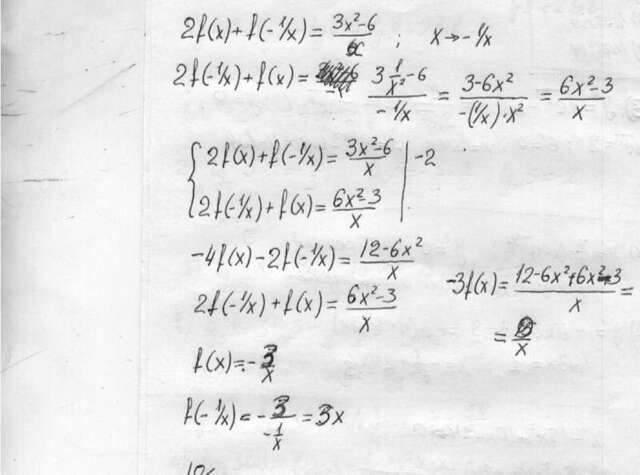 2f(x)+f(-1/x)=(3x²-6)/x ; x→-1/x
2f(-1/x)+f(x)= (3 1/x² -6)/(-1/x) = (3-6x²)/(-(1/x)·x²) = (6x²-3)/x
{ 2f(x)+f(-1/x)=(3x²-6)/x | -2
2f(-1/x)+f(x)=(6x²-3)/x
-4f(x)-2f(-1/x)=(12-6x²)/x
2f(-1/x)+f(x)=(6x²-3)/x
-3f(x)=(12-6x²+6x²-3)/x =
= 9/x
f(x)=-3/x
f(-1/x)=-3/(-1/x)=3x